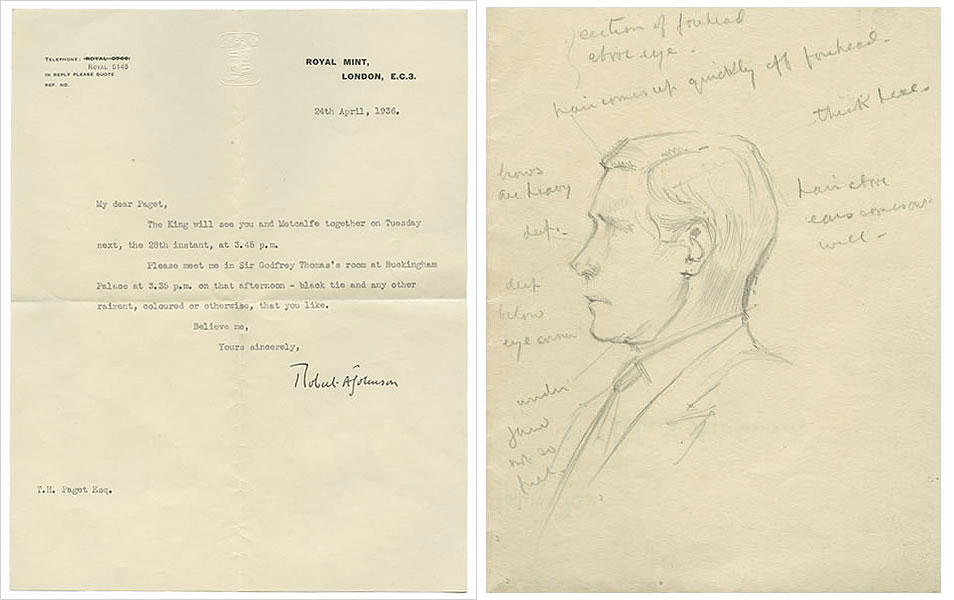 TELEPHONE: ROYAL 0766
ROYAL 5145
IN REPLY PLEASE QUOTE
REF. NO.
ROYAL MINT,
LONDON, E.C.3.
24th April, 1936.
My dear Paget,
The King will see you and Metcalfe together on Tuesday
next, the 28th instant, at 3.45 p.m.
Please meet me in Sir Godfrey Thomas's room at Buckingham
Palace at 3.35 p.m. on that afternoon - black tie and any other
raiment, coloured or otherwise, that you like.
Believe me,
Yours sincerely,
Robert A Johnson
T.H. Paget Esq.
section of forehead
above eye.
hair comes up quickly off forehead.
thick here
brows
are heavy
deep
hair above
ears comes out
well -
deep
below
eye corner
under
jaw
not so
full